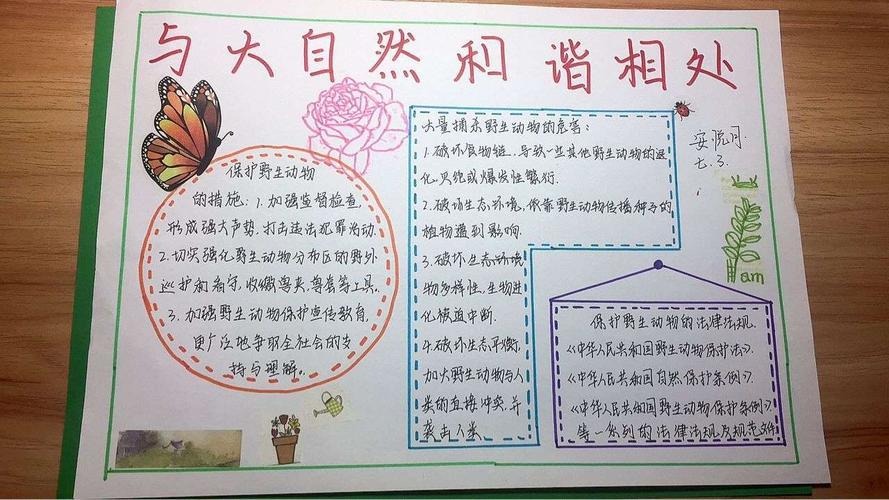 与大自然和谐相处
保护野生动物
的措施：1.加强监督检查,
形成强大声势,打击违法犯罪活动.
2.切实强化野生动物分布区的野外
巡护和看守,收缴兽夹,兽套等工具。
3.加强野生动物保护宣传教育,
更广泛地争取全社会的支
持与理解。
大量捕杀野生动物的危害：
1.破坏食物链,导致一些其他野生动物的退
化,灭绝或爆发性繁衍.
2.破坏生态环境,依靠野生动物传播种子的
植物遭到影响.
3.破坏生态环境
物多样性,生物进
化被迫中断.
4.破坏生态平衡,
加大野生动物与人
类的直接冲突,并
袭击人类
安悦月.
七.3.
am
保护野生动物的法律法规.
《中华人民共和国野生动物保护法》.
《中华人民共和国自然保护条例》.
《中华人民共和国野生动物保护条例》.
等一系列的法律法规及规范文件